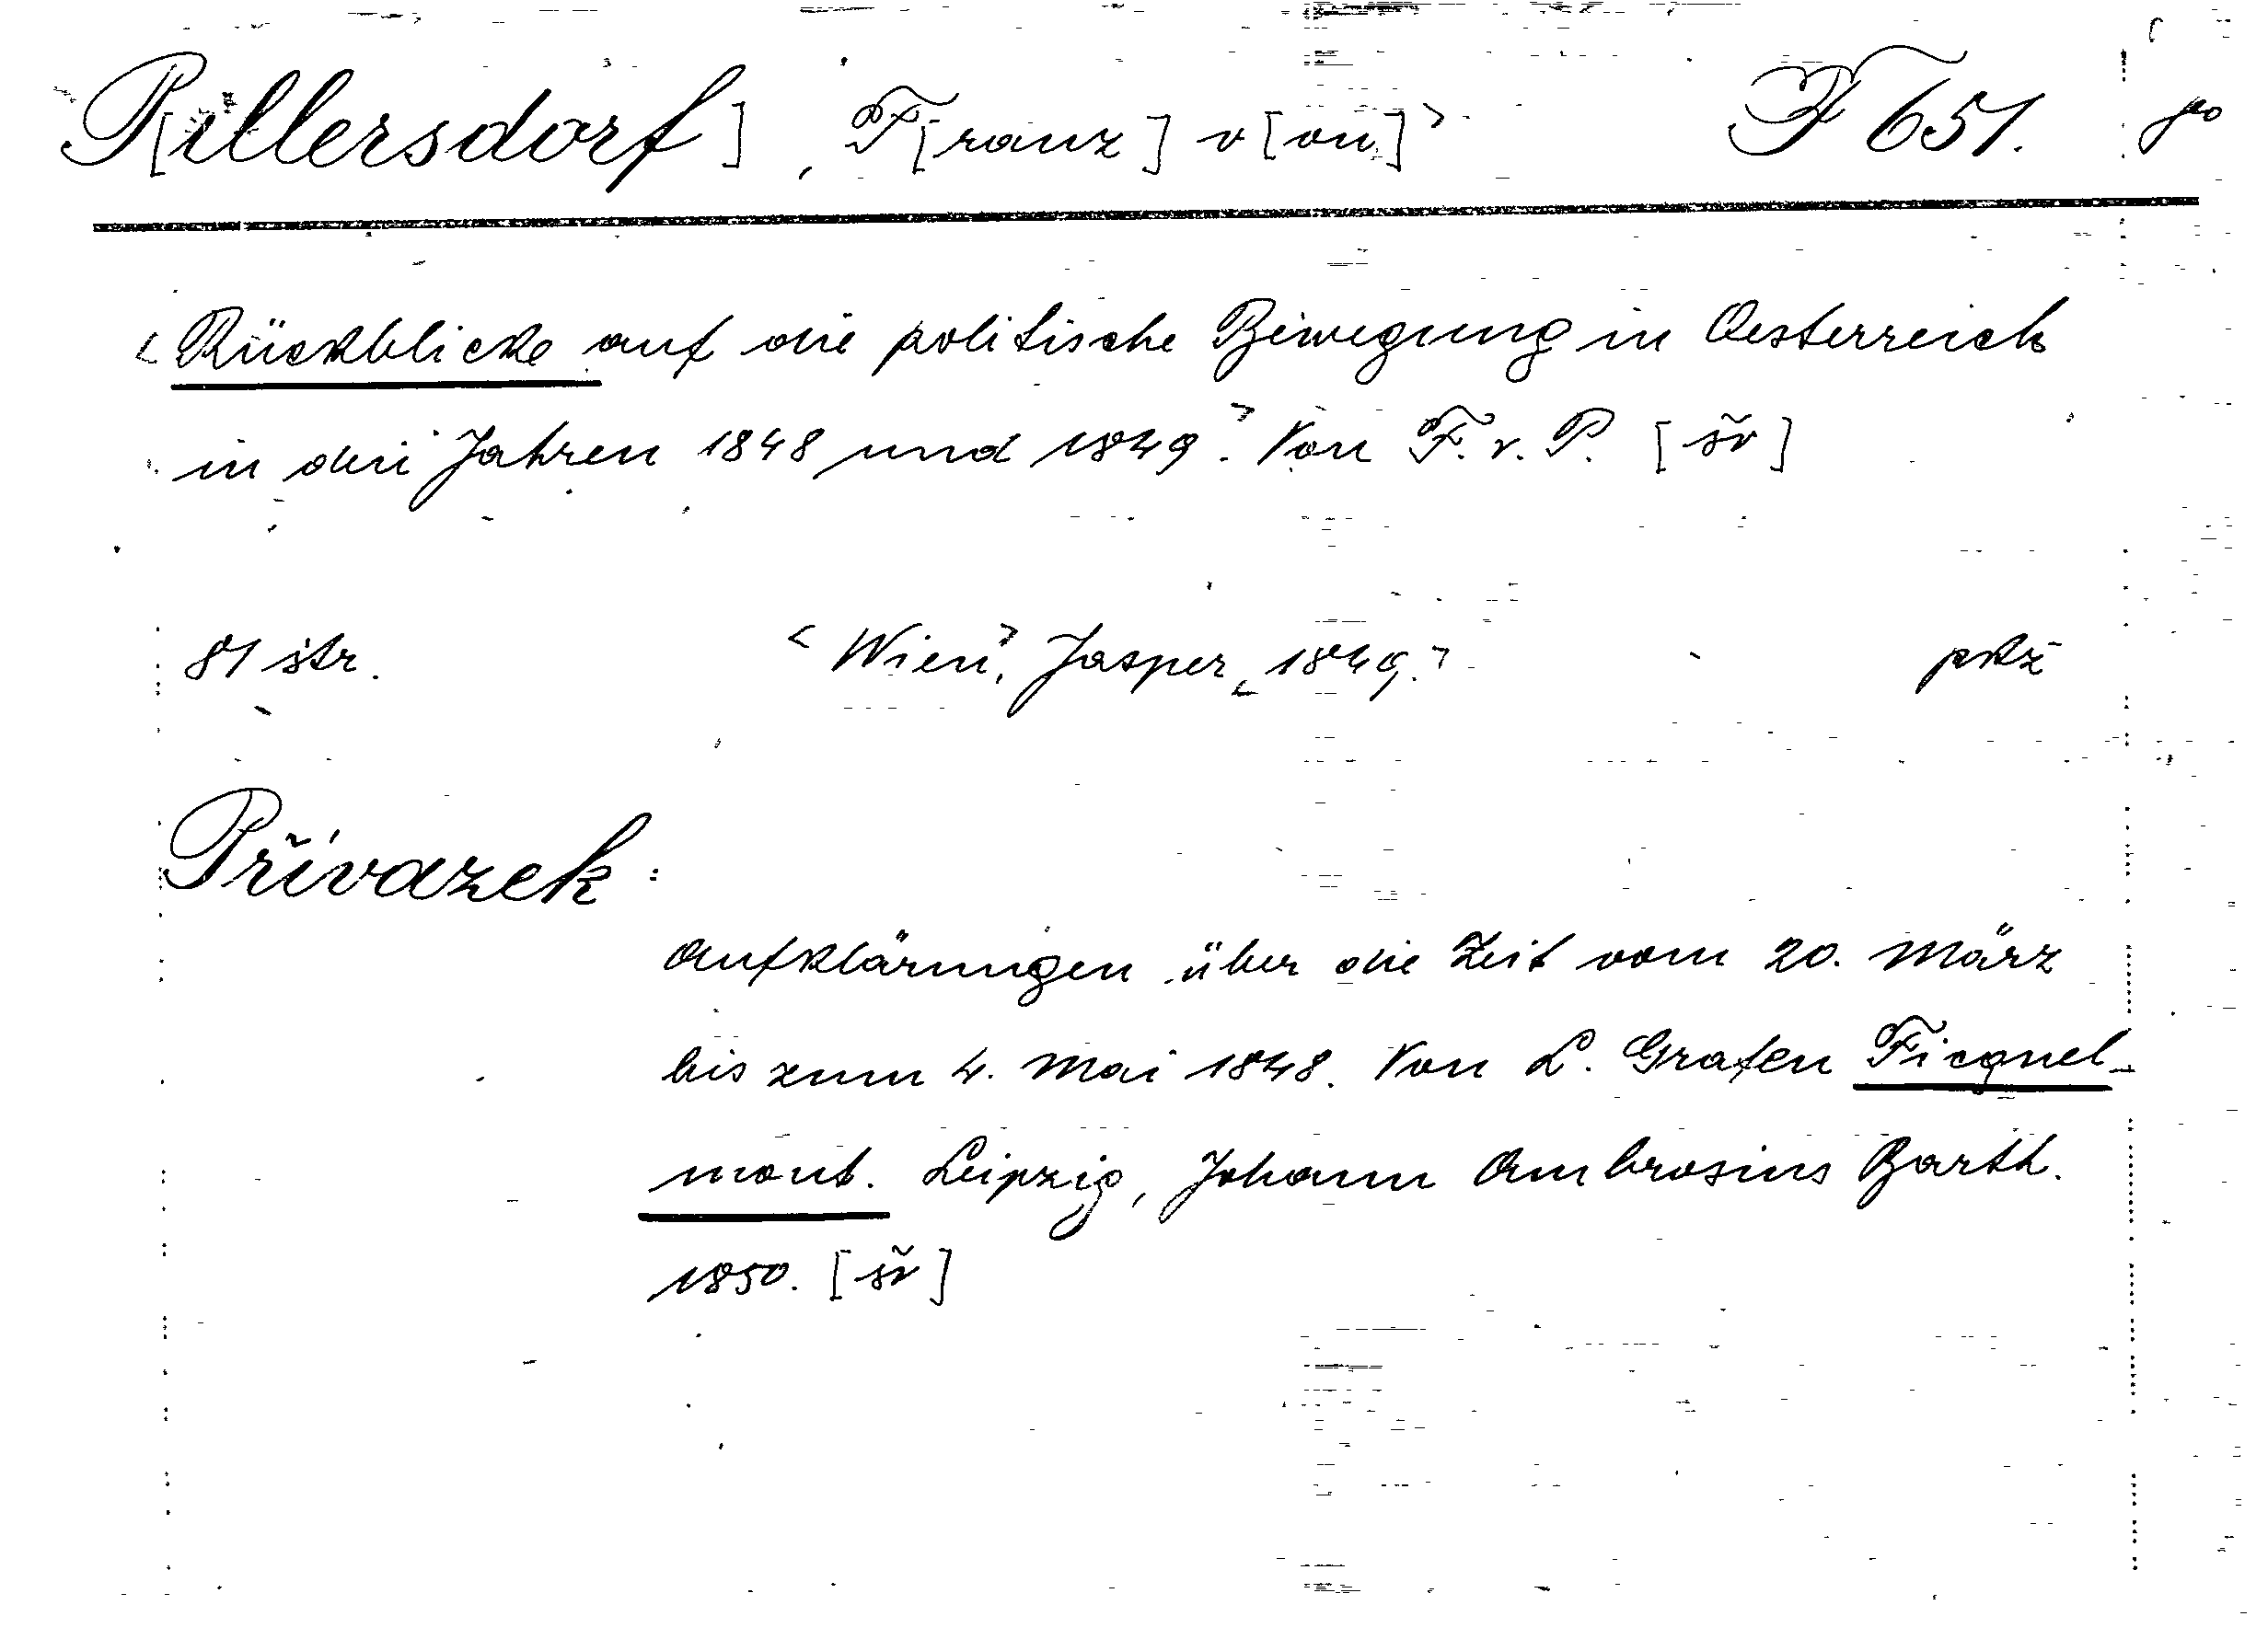 P[illersdorf], F[ranz] v[on] F 651.
Rückblicke auf die politische Bewegung in Oesterreich
in den Jahren 1848 und 1849. Von F. v. P. [šv]
81 str. Wien, Jasper, 1849. pkž
Přívazek:
Aufklärungen über die Zeit vom 20. März
bis zum 4. Mai 1848. Von L. Grafen Ficquel-
mont. Leipzig, Johann Ambrosius Barth.
1850. [šv]